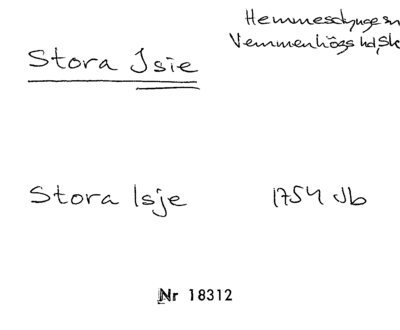 Hemmesdynge sn
Vemmenhögs hd, Sk
Stora Isie
Stora Isje 1754 Jb
Nr 18312